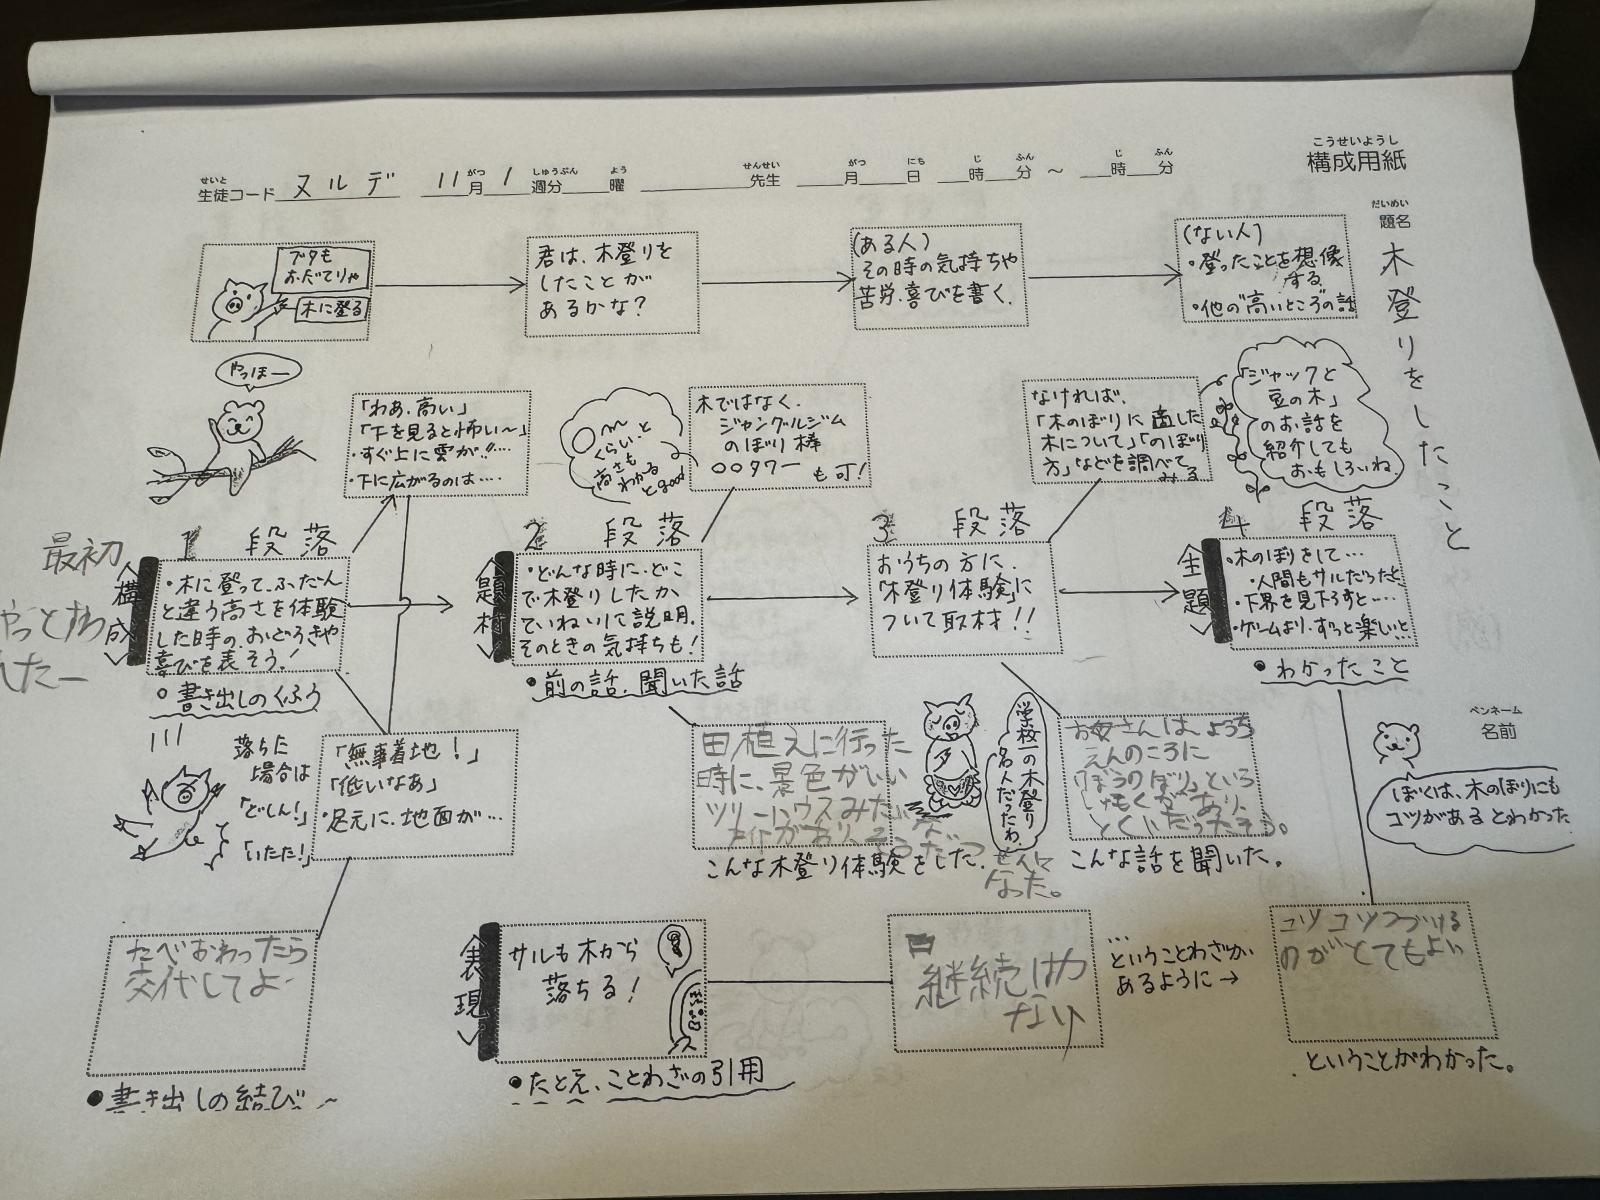 こうせいようし
構成用紙
せいと
生徒コード ヌルデ 11月 1週分 曜 先生 月 日 時 分 ~ 時 分
がつ しゅうぶん よう せんせい がつ にち じ ふん じ ふん
だいめい
題名
木登りをしたこと
ブタも
おだてりゃ
木に登る
君は、木登りを
したことが
あるかな?
(ある人)
その時の気持ちや
苦労、喜びを書く、
(ない人)
・登ったことを想像
する
・他の“高いところ”の話
やっほー
「わあ、高い」
「下を見ると怖い〜」
・すぐ上に雲が!!‥‥
・下に広がるのは‥‥
〇m
くらい、と
高さも
わかる
とgood
木ではなく、
ジャングルジム
のぼり棒
〇〇タワー
も可!
なければ、
「木のぼりに適した
木について」「のぼり
方」などを調べて
みる
「ジャックと
豆の木」
のお話を
紹介しても
おもしろいね
最初
1 段落
<構成>
・木に登って、ふだん
と違う高さを体験
した時の、おどろきや
喜びを表そう!
○書き出しのくふう
2 段落
<題材>
・どんな時に、どこ
で木登りしたか、
ていねいに説明。
そのときの気持ちも!
・前の話、聞いた話
3 段落
おうちの方に、
「木登り体験」に
ついて取材!!
4 段落
<主題>
・木のぼりをして…
・人間もサルだったと、
・下界を見下ろすと‥‥
・ゲームより、ずっと楽しいと
・わかったこと
落ちた
場合は
「どしん!」
「いたた!」
「無事着地!」
「低いなあ」
・足元に、地面が…
田植えに行った
時に、景色がいい
ツリーハウスみたいな
こんな木登り体験をした。
なった。
学校一の木登り
名人だったわ
お母さんは、ようち
えんのころに
「ぼうのぼり」という
しゅもくがあり、
とくいだったそう。
こんな話を聞いた。
ペンネーム
名前
ぼくは、木のぼりにも
コツがあるとわかった
たべおわったら
交代してよ
・書き出しの結び
<表現>
サルも木から
落ちる!
・たとえ、ことわざの引用
継続は力
なり
…
ということわざが
あるように→
コツコツつづける
のがとてもよい
ということがわかった。